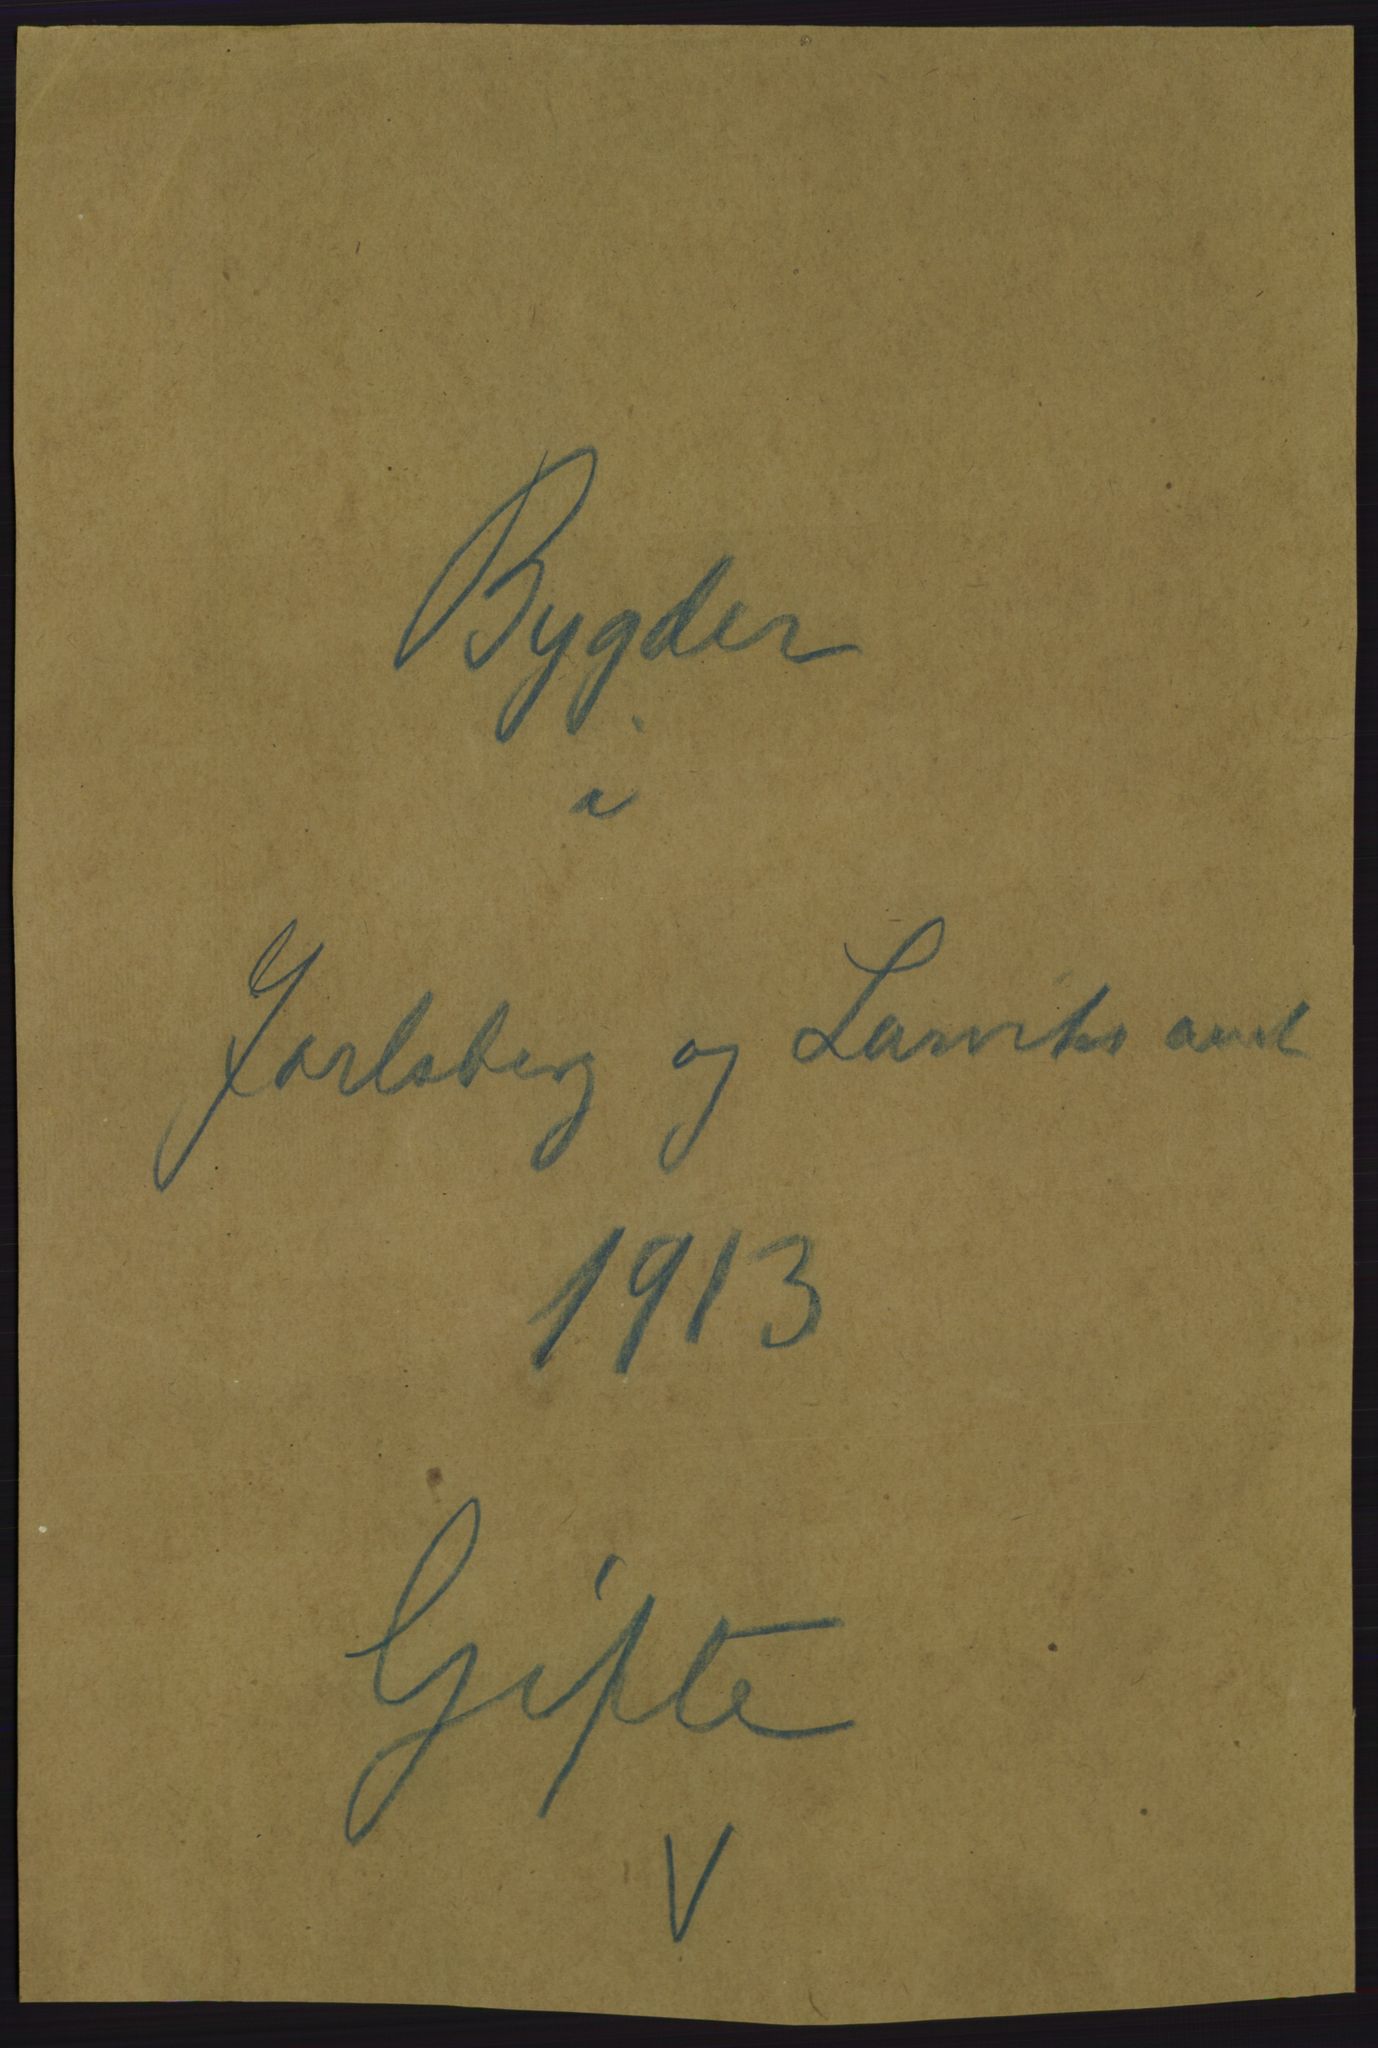 Bygder
i
Jarlsberg og Larviks amt
1913
Gifte
V